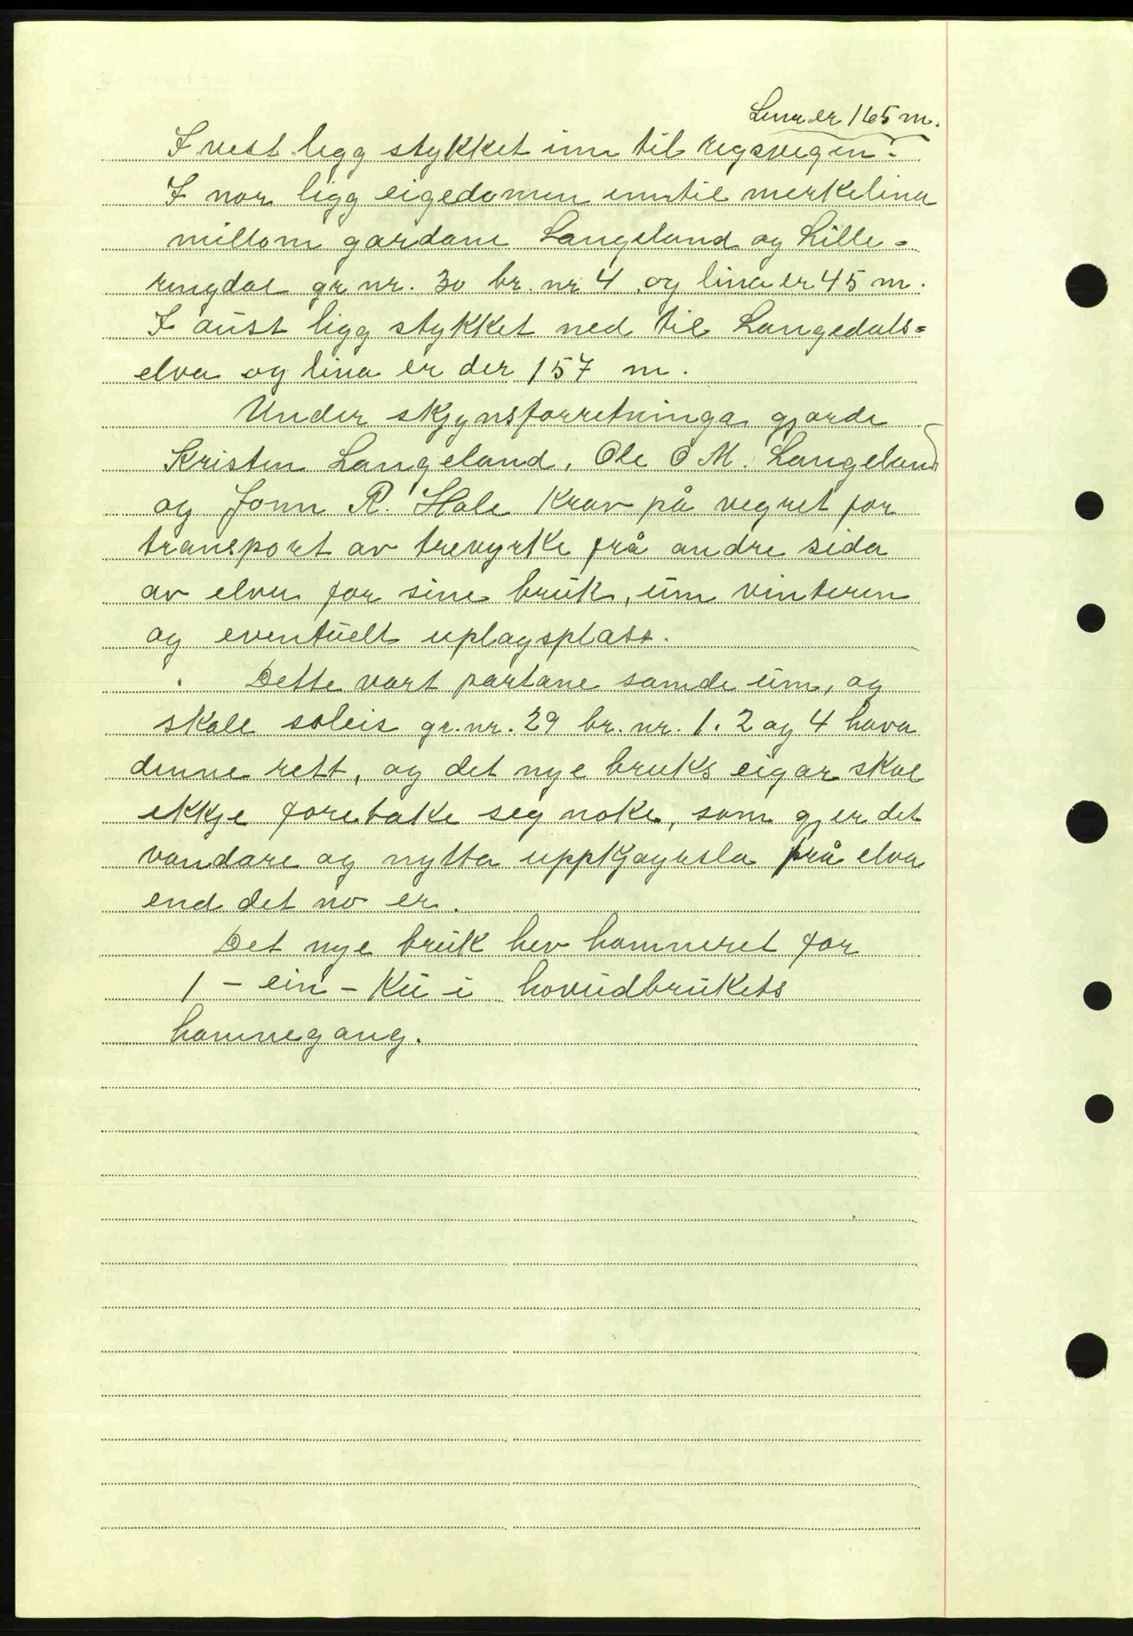 Lina er 165 m.
I vest ligg stykket inn til rigsvegen.
I nor ligg eigedomen inntil merkelina
millom gardane Langeland og Lille-
ringdal gr. nr. 30 br. nr 4 og lina er 45 m.
I aust ligg stykket ned til Langedals=
elva og lina er der 157 m.
Under skjynsforretninga gjorde
Kristen Langeland, Ole O M. Langeland
og Jonn R. Hole krav på vegret for
transport av trevyrke frå andre sida
av elva for sine bruk, um vinteren
og eventuelt uplagsplass.
Dette vart partane samde um, og
skal soleis gr. nr. 29 br. nr. 1. 2 og 4 hava
denne rett, og det nye bruks eigar skal
ikkje foretake seg noke, som gjer det
vandare og nytta uppkjøyrsla frå elva
end det no er.
Det nye bruk hev hamneret for
1 - ein - Ku i hovudbrukets
hamnegang.